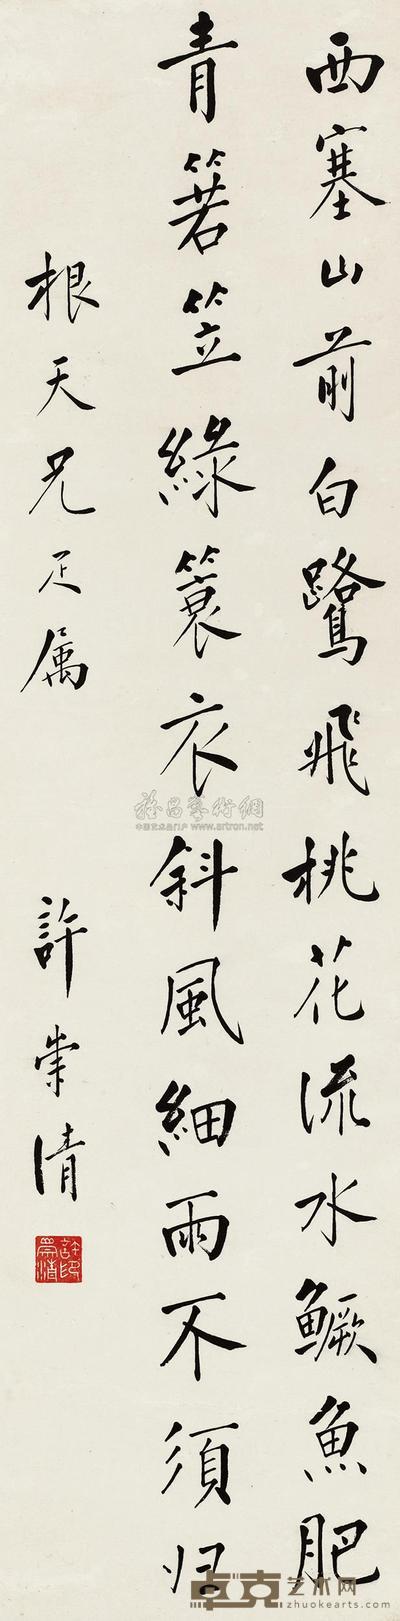 西塞山前白鷺飛桃花流水鱖魚肥
青箬笠綠簑衣斜風細雨不須归
根天兄疋属
許崇清
許崇清印
雅昌藝術網
中国艺术品门户 www.artron.net
卓克艺术网
www.zhuokearts.com